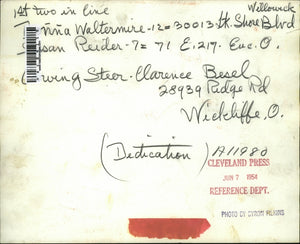 1st two in line
Willowick
Waltermire - 12 = 30013 Lk Shore Blvd
Reider - 7 = 71 E. 217 - Euc. O.
Steer - Clarence Besel
28939 Ridge Rd
Wickliffe, O.
(Dedication) A11980
CLEVELAND PRESS
JUN 7 1954
REFERENCE DEPT.
PHOTO BY BYRON FILKINS